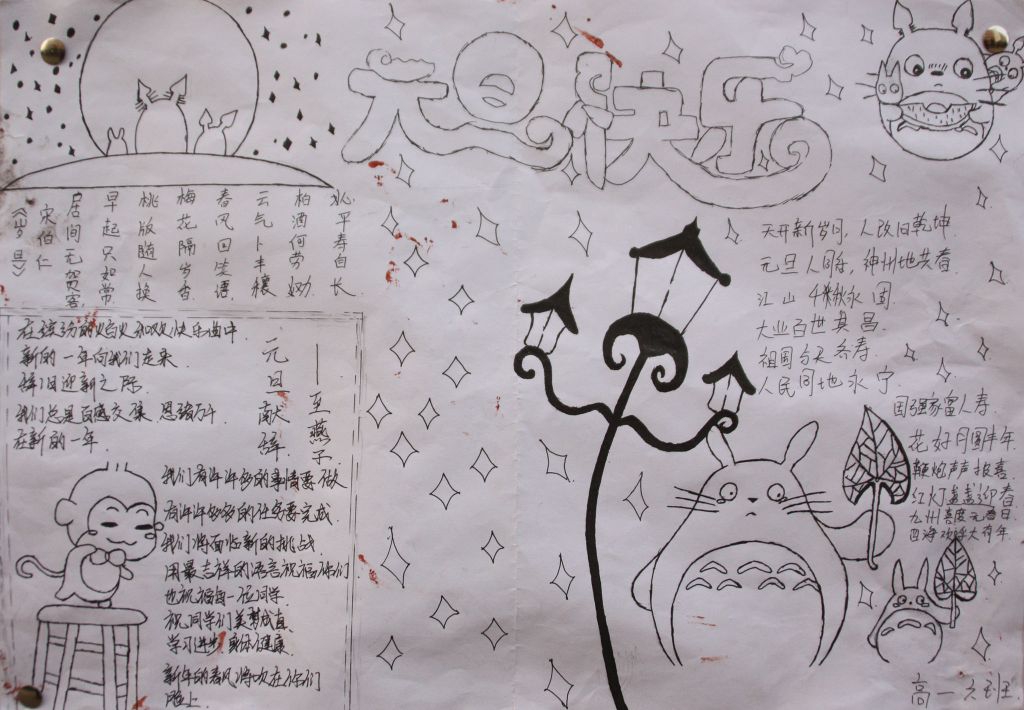 元旦快乐
《岁旦》
宋伯仁
居间无贺客
早起只如常
桃版随人换
梅花隔岁香
春风回笑语
云气卜丰穰
柏酒何劳劝
心平寿自长
元旦献辞
——至燕子
在缤纷的焰火和欢快乐曲中
新的一年向我们走来
辞旧迎新之际
我们总是百感交集 思绪万千
在新的一年
我们有许许多多的事情要做
有许许多多的任务要完成
我们将面临新的挑战
用最吉祥的语言祝福你们
也祝福每一位同学
祝同学们美梦成真
学习进步 身体健康
新年的春风将吹在你们
脸上
天开新岁月,人改旧乾坤
元旦人同乐,神州地共春
江山千秋永固
大业百世其昌
祖国与天齐寿
人民同地永宁
国强家富人寿
花好月圆丰年
鞭炮声声报喜
红灯盏盏迎春
九州喜度元旦日
四海欢许大有年
高一六班